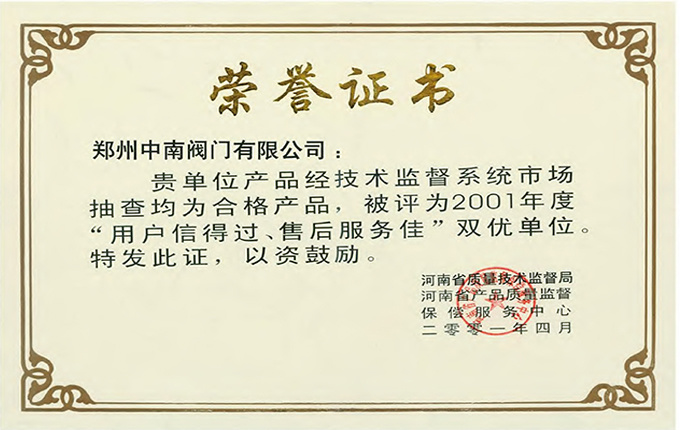 荣誉证书
郑州中南阀门有限公司：
贵单位产品经技术监督系统市场
抽查均为合格产品，被评为2001年度
“用户信得过、售后服务佳”双优单位。
特发此证，以资鼓励。
河南省质量技术监督局
河南省产品质量监督
保偿服务中心
二零零一年四月